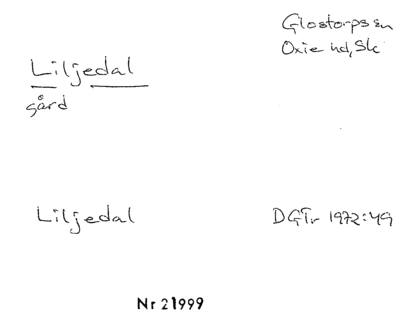 Glostorps sn
Oxie hd, Sk
Liljedal
gård
Liljedal
DGTr 1972:49
Nr 21999